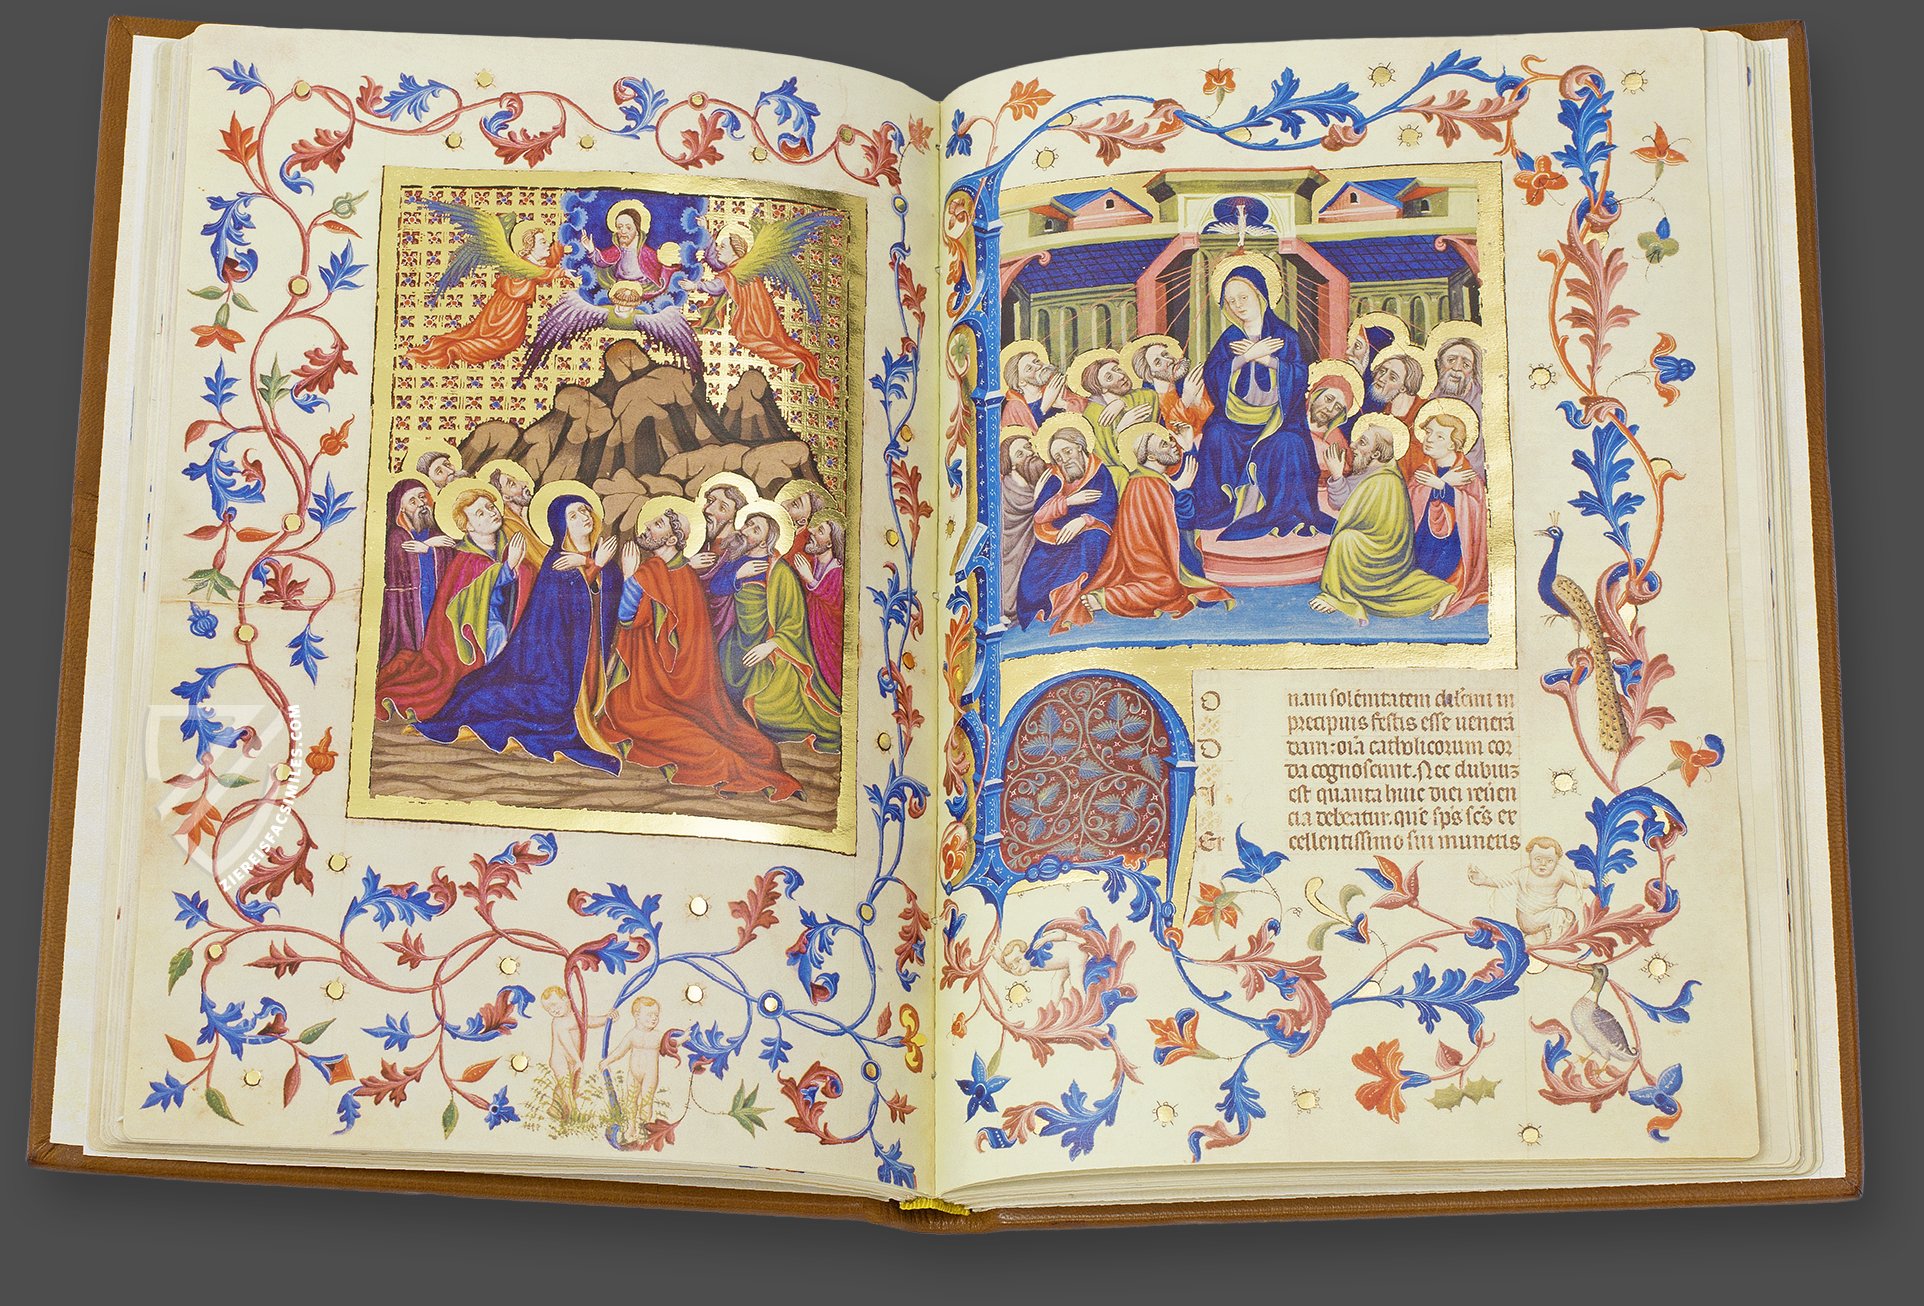 ZIEREISFACSIMILES.COM
nam solẽnitatem in
precipuis festis esse uenerã
dam: oĩa catholicorum cor
da cognoscunt. Nec dubiuz
est quanta huic diei reuẽn
cia debeatur. que sp̃s sc̃s ex
cellentissimo sui muneris